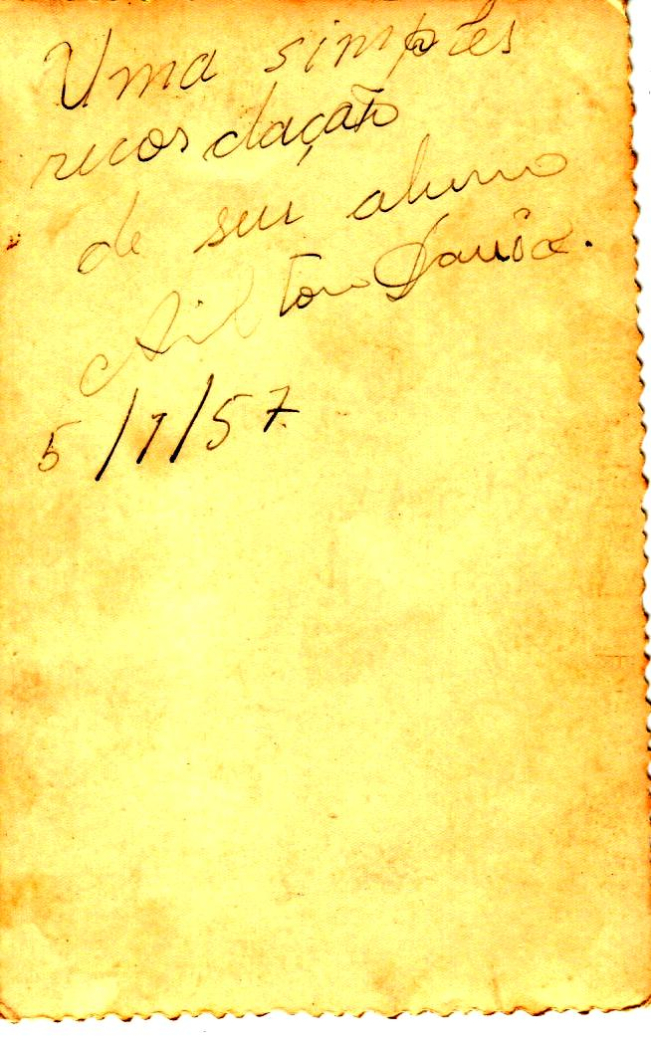 Uma simples
recordação
de seu aluno
Ailton
5/1/57